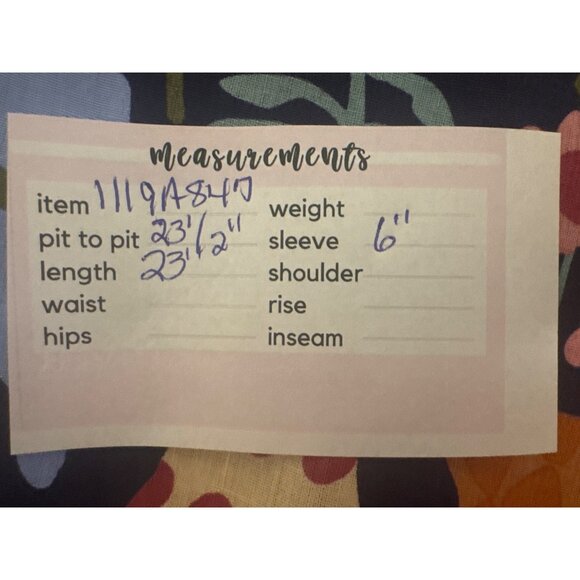 measurements
item 1119A847 weight
pit to pit 23 1/2" sleeve 6"
length 23" shoulder
waist rise
hips inseam